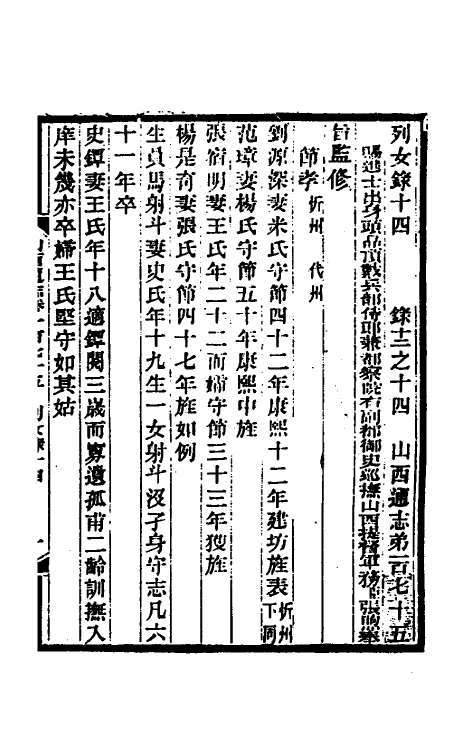 列女錄十四　錄十二之十四　山西通志弟一百七十五
賜進士出身頭品頂戴兵部侍郎兼都察院右副都御史巡撫山西提督軍務
旨監修
節孝　忻州　代州
劉源深妻米氏守節四十二年康熙十二年建坊旌表忻州下同
范璋妻楊氏守節五十年康熙中旌
張宿明妻王氏年二十二而孀守節三十三年獲旌
楊是奇妻張氏守節四十七年旌如例
生員馬射斗妻史氏年十九生一女射斗沒孑身守志凡六
十一年卒
史鐔妻王氏年十八適鐔閱三歲而寡遺孤甫二齡訓撫入
庠未幾亦卒婦王氏堅守如其姑